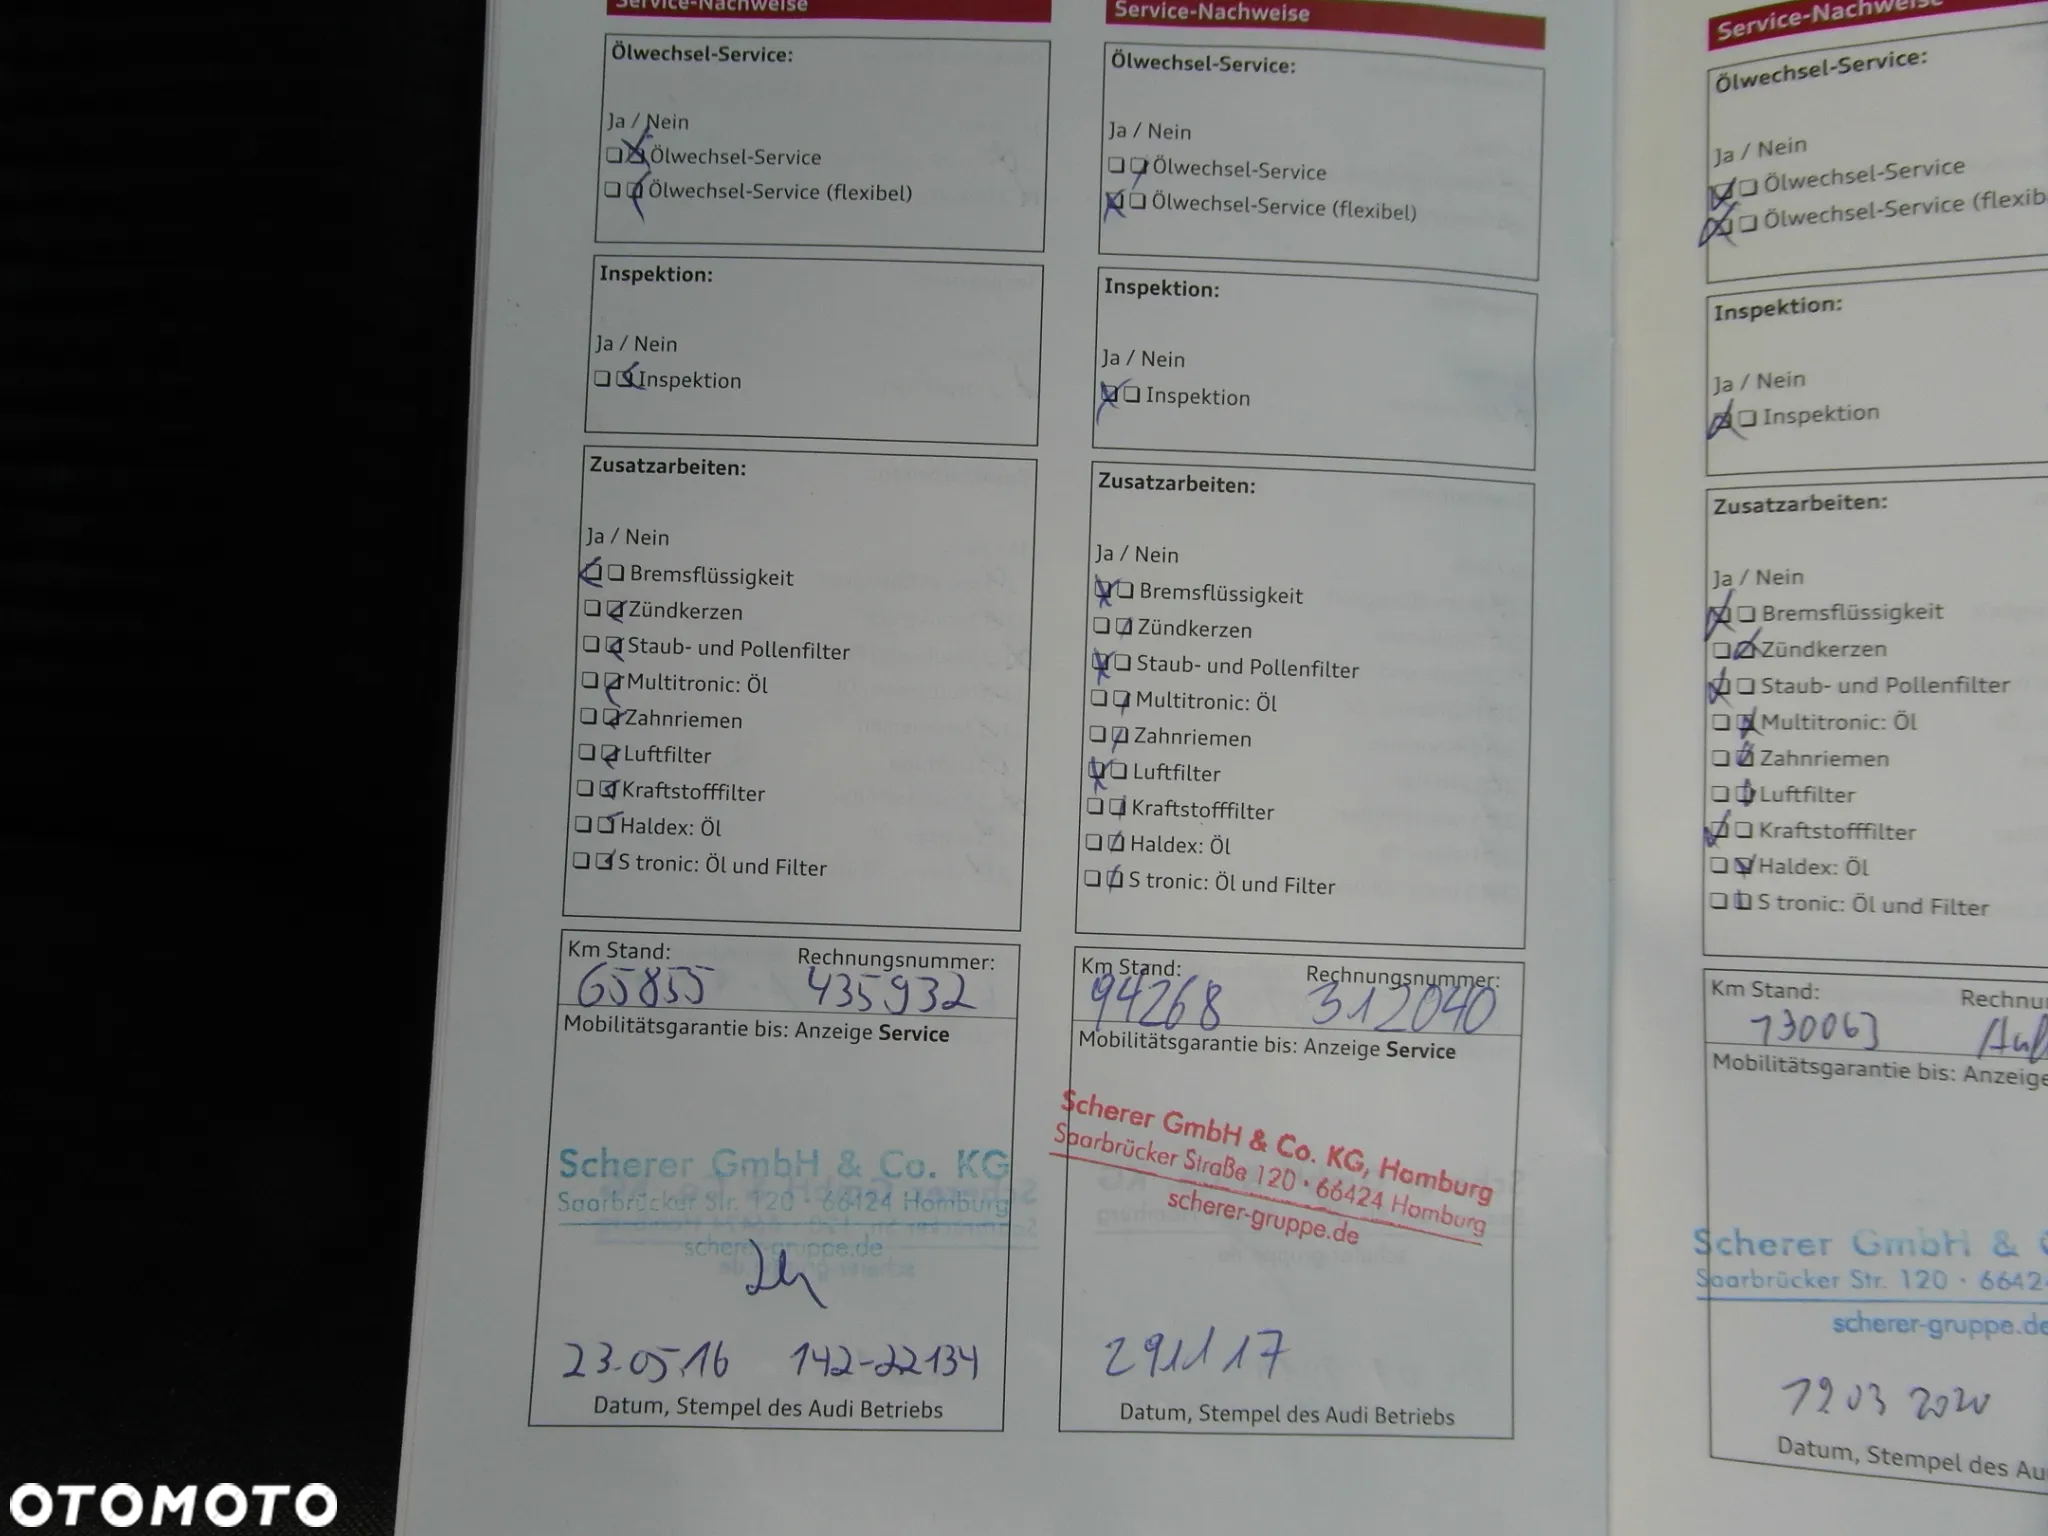 Service-Nachweise
Ölwechsel-Service:
Ja / Nein
Ölwechsel-Service
Ölwechsel-Service (flexibel)
Inspektion:
Ja / Nein
Inspektion
Zusatzarbeiten:
Ja / Nein
Bremsflüssigkeit
Zündkerzen
Staub- und Pollenfilter
Multitronic: Öl
Zahnriemen
Luftfilter
Kraftstofffilter
Haldex: Öl
S tronic: Öl und Filter
Km Stand: Rechnungsnummer:
65855 435932
Mobilitätsgarantie bis: Anzeige Service
Scherer GmbH & Co. KG
Saarbrücker Str. 120 · 66424 Homburg
scherer-gruppe.de
23.05.16 142-22134
Datum, Stempel des Audi Betriebs
Service-Nachweise
Ölwechsel-Service:
Ja / Nein
Ölwechsel-Service
Ölwechsel-Service (flexibel)
Inspektion:
Ja / Nein
Inspektion
Zusatzarbeiten:
Ja / Nein
Bremsflüssigkeit
Zündkerzen
Staub- und Pollenfilter
Multitronic: Öl
Zahnriemen
Luftfilter
Kraftstofffilter
Haldex: Öl
S tronic: Öl und Filter
Km Stand: Rechnungsnummer:
94268 312040
Mobilitätsgarantie bis: Anzeige Service
Scherer GmbH & Co. KG, Homburg
Saarbrücker Straße 120 · 66424 Homburg
scherer-gruppe.de
Datum, Stempel des Audi Betriebs
Service-Nachweise
Ölwechsel-Service:
Ja / Nein
Ölwechsel-Service
Ölwechsel-Service (flexib
Inspektion:
Ja / Nein
Inspektion
Zusatzarbeiten:
Ja / Nein
Bremsflüssigkeit
Zündkerzen
Staub- und Pollenfilter
Multitronic: Öl
Zahnriemen
Luftfilter
Kraftstofffilter
Haldex: Öl
S tronic: Öl und Filter
Km Stand: Rechnu
130063
Mobilitätsgarantie bis: Anzeige
Scherer GmbH &
Saarbrücker Str. 120 · 6642
scherer-gruppe.de
03 2020
Datum, Stempel des Au
OTOMOTO